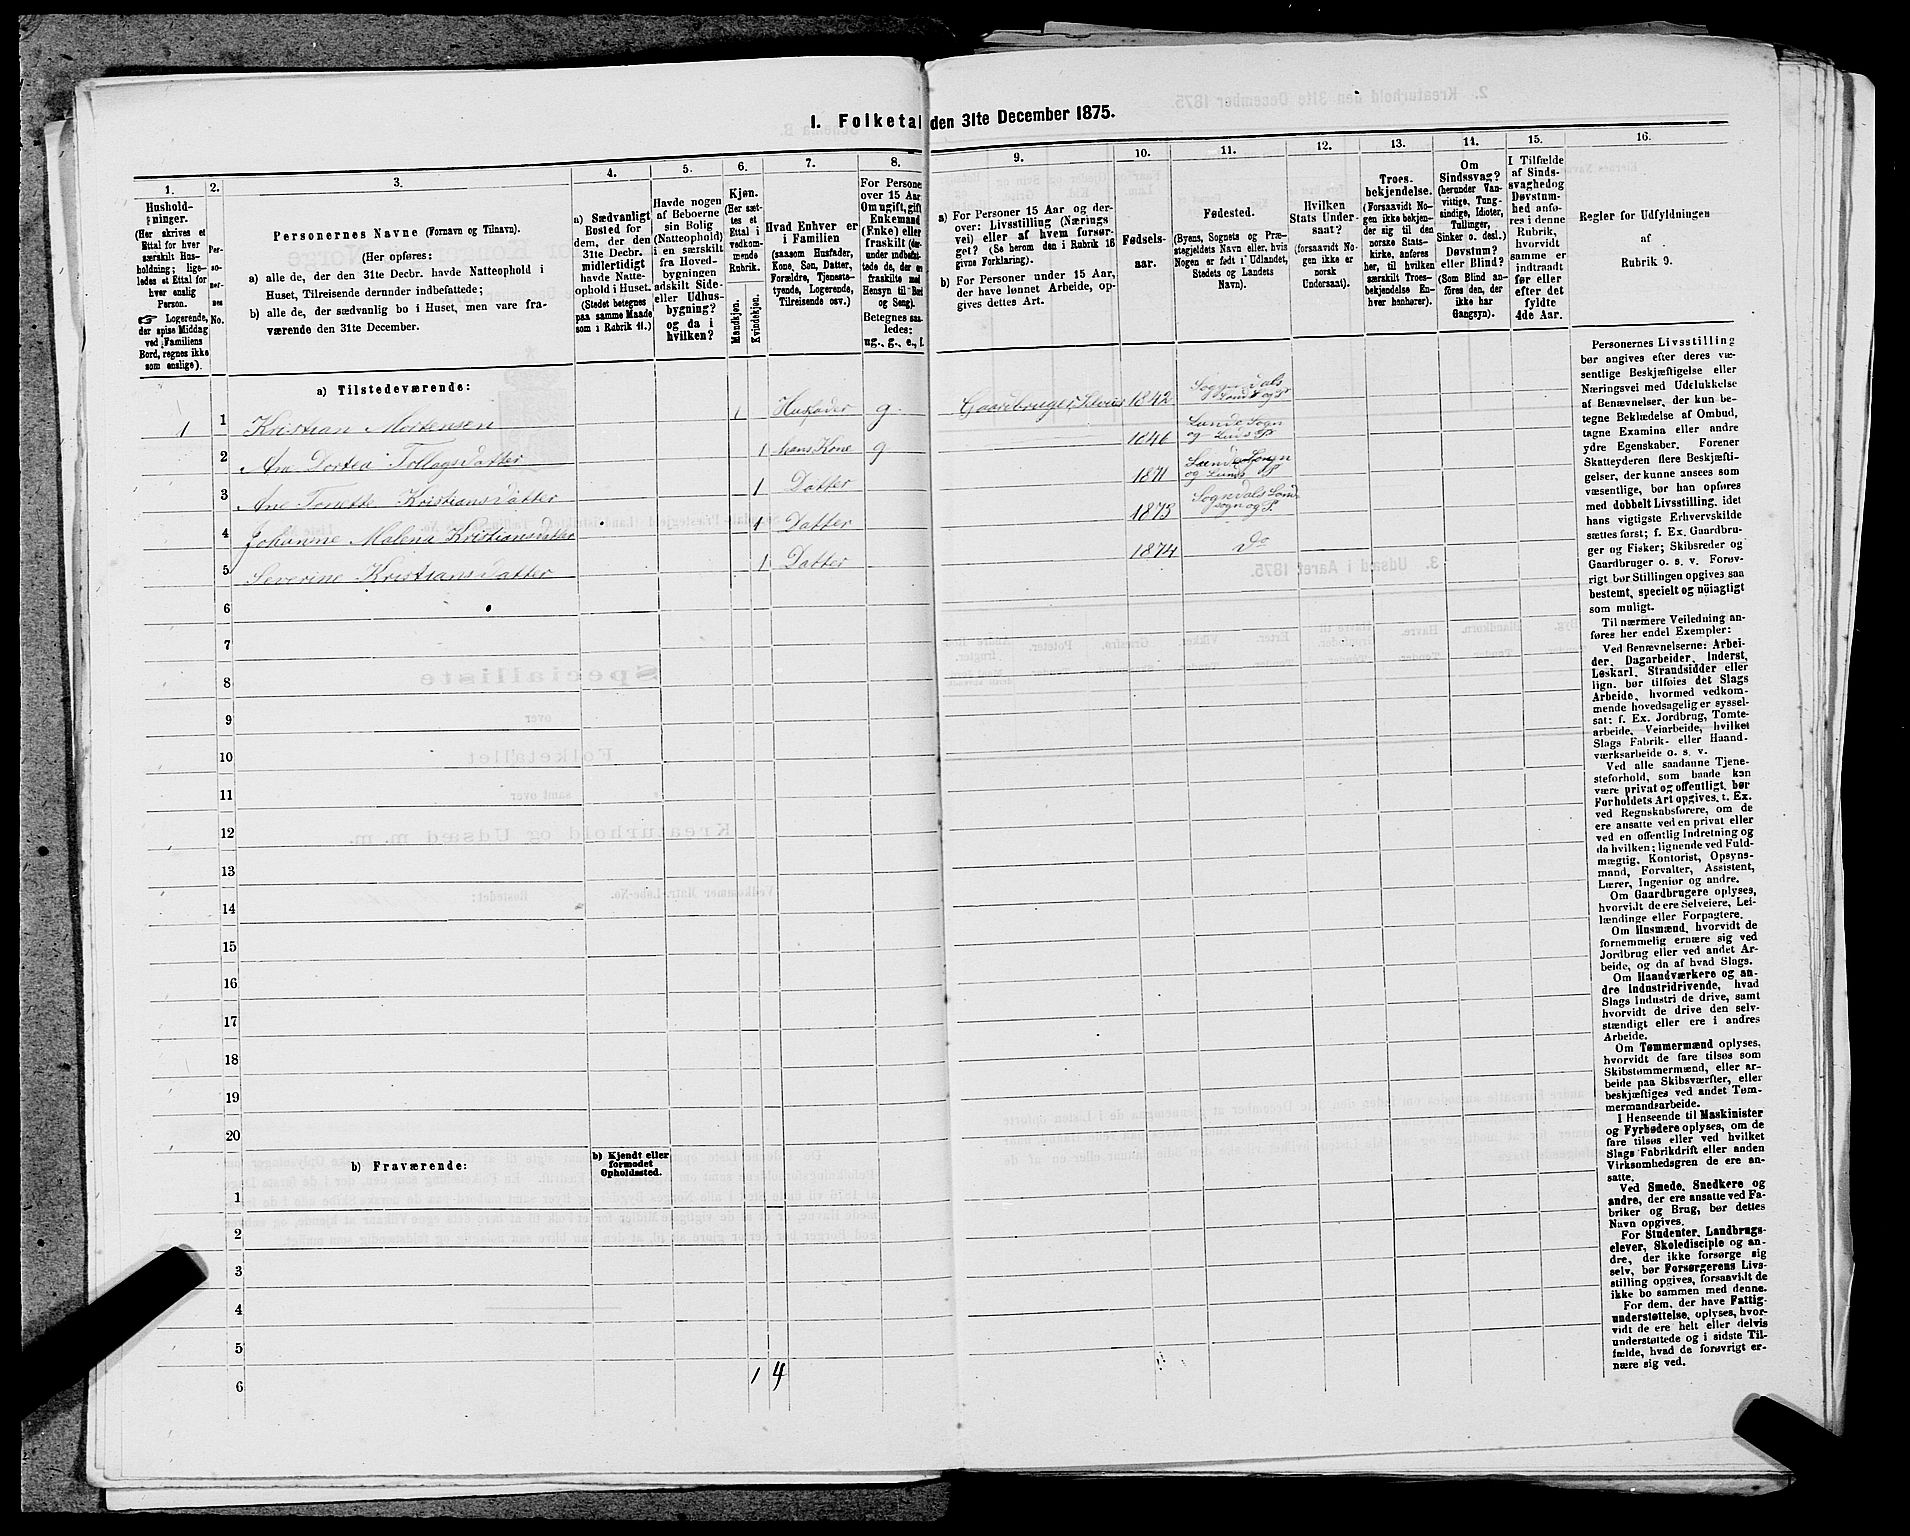 I. Folketal den 31te December 1875.
1. 2. 3. 4. 5. 6. 7. 8. 9. 10. 11. 12. 13. 14. 15. 16.
Hushold-
ninger.
(Her skrives et
Ettal for hver
særskilt Hus-
holdning; lige-
ledes et Ettal for
hver enslig
Person.
☞ Logerende,
der spise Middag
ved Familiens
Bord, regnes ikke
som enslige).
Per-
so-
ner-
nes
No.
Personernes Navne (Fornavn og Tilnavn).
(Her opføres:
a) alle de, der den 31te Decbr. havde Natteophold i
Huset, Tilreisende derunder indbefattede;
b) alle de, der sædvanlig bo i Huset, men vare fra-
værende den 31te December.
a) Sædvanligt
Bosted for
dem, der den
31te Decbr.
midlertidigt
havde Natte-
ophold i Huset.
(Stedet betegnes
paa samme Maade
som i Rubrik 11.)
Havde nogen
af Beboerne
sin Bolig
(Natteophold)
i en særskilt
fra Hoved-
bygningen
adskilt Side-
eller Udhus-
bygning?
og da i
hvilken?
Kjøn.
(Her sæt-
tes et
Ettal i
vedkom-
mende
Rubrik.
Mandkjøn.
Kvindekjøn.
Hvad Enhver er
i Familien
(saasom Husfader,
Kone, Søn, Datter,
Forældre, Tjeneste-
tyende, Logerende,
Tilreisende osv.)
For Persone
over 15 Aar
Om ugift, gift
Enkemand
(Enke) eller
fraskilt (der-
under indbefat-
tede de, der ere
fraskilte med
Hensyn til Bord
og Seng).
Betegnes saa-
ledes:
ug., g., e., f.
a) For Personer 15 Aar og der-
over: Livsstilling (Nærings-
vei) eller af hvem forsør-
get? (Se herom den i Rubrik 16
givne Forklaring).
b) For Personer under 15 Aar,
der have lønnet Arbeide, op-
gives dettes Art.
Fødsels-
aar.
Fødested.
(Byens, Sognets og Præ-
stegjeldets Navn eller, hvis
Nogen er født i Udlandet,
Stedets og Landets
Navn).
Hvilken
Stats Under-
saat?
(forsaavidt No-
gen ikke er
norsk
Undersaat).
Troes-
bekjendelse.
(Forsaavidt No-
gen ikke bekjen-
der sig til den
norske Stats-
kirke, anføres
her, til hvilken
særskilt Troes-
bekjendelse En-
hver henhører).
Om
Sindssvag?
(herunder Van-
vittige, Tung-
sindige, Idioter,
Tullinger,
Sinker o. desl.)
Døvstum?
eller Blind?
(Som Blind an-
føres den, der
ikke har
Gangsyn).
I Tilfælde
af Sinds-
svaghed og
Døvstum-
hed anfø-
res i denne
Rubrik,
hvorvidt
samme er
indtraadt
før eller
efter det
fyldte
4de Aar.
Regler for Udfyldningen
af
Rubrik 9.
a) Tilstedeværende:
1 1 Kristian Mortensen 1 Husfader g. Gaardbruger, 1842 Sogndals Lands og P
2 Ane Dortea Tollagsdatter 1 hans Kone g 1846 Lunde Sogn og Lunds P
3 Ane Tonette Kristiansdatter 1 Datter 1871 Lunde Sogn og Lunds P
4 Johanne Malena Kristiansdatter 1 Datter 1873 Sogndals Land sogn og P.
5 Severine Kristiansdatter 1 Datter 1874 Do
6
7
8
9
10
11
12
13
14
15
16
17
18
19
20
b) Fraværende:
b) Kjendt eller
formodet
Opholdssted.
1
2
3
4
5
6
1 4
Personernes Livsstilling
bør angives efter deres væ-
sentlige Beskjæftigelse eller
Næringsvei med Udelukkelse
af Benævnelser, der kun be-
tegne Beklædelse af Ombud,
tagne Examina eller andre
ydre Egenskaber. Forener
Skatteyderen flere Beskjæfti-
gelser, der kunne ansees som
væsentlige, bør han opføres
med dobbelt Livsstilling, idet
hans vigtigste Erhvervskilde
sættes først; f. Ex. Gaardbru-
ger og Fisker; Skibsreder og
Gaardbruger o. s. v. Forøv-
rigt bør Stillingen opgives saa
bestemt, specielt og nøiagtigt
som muligt.
Til nærmere Veiledning an-
føres her endel Exempler:
Ved Benævnelserne: Arbei-
der, Dagarbeider, Inderst,
Løskarl, Strandsidder eller
lign. bør tilføies det Slags
Arbeide, hvormed vedkom-
mende hovedsagelig er syssel-
sat; f. Ex. Jordbrug, Tomte-
arbeide, Veiarbeide, hvilket
Slags Fabrik- eller Haand-
værksarbeide o. s. v.
Ved alle saadanne Tjene-
steforhold, som baade kan
være privat og offentligt, bør
Forholdets Art opgives, t. Ex.
ved Regnskabsførere, om de
ere ansatte ved en privat eller
ved en offentlig Indretning og
da hvilken; lignende ved Fuld-
mægtig, Kontorist, Opsyns-
mand, Forvalter, Assistent,
Lærer, Ingeniør og andre.
Om Gaardbrugere oplyses,
hvorvidt de ere Selveiere, Lei-
lændinge eller Forpagtere.
Om Husmænd, hvorvidt de
fornemmelig ernære sig ved
Jordbrug eller ved andet Ar-
beide, og da af hvad Slags.
Om Haandværkere og an-
dre Industridrivende, hvad
Slags Industri de drive, samt
hvorvidt de drive den selv-
stændigt eller ere i andres
Arbeide.
Om Tømmermænd oplyses,
hvorvidt de fare tilsøs som
Skibstømmermænd, eller ar-
beide paa Skibsværfter, eller
beskjæftiges ved andet Tøm-
mermandsarbeide.
I Henseende til Maskinister
og Fyrbødere oplyses, om de
fare tilsøs eller ved hvilket
Slags Fabrikdrift eller anden
Virksomhedsgren de ere an-
satte.
Ved Smede, Snedkere og
andre, der ere ansatte ved Fa-
briker og Brug, bør dettes
Navn opgives.
For Studenter, Landbrugs-
elever, Skoledisciple og an-
dre, der ikke forsørge sig
selv, bør Forsørgerens Livs-
stilling opgives, forsaavidt de
ikke bo sammen med denne.
For dem, der have Fattig-
understøttelse, oplyses, hvor-
vidt de ere helt eller delvis
understøttede og i sidste Til-
fælde, hvad de forøvrigt er-
nære sig ved.